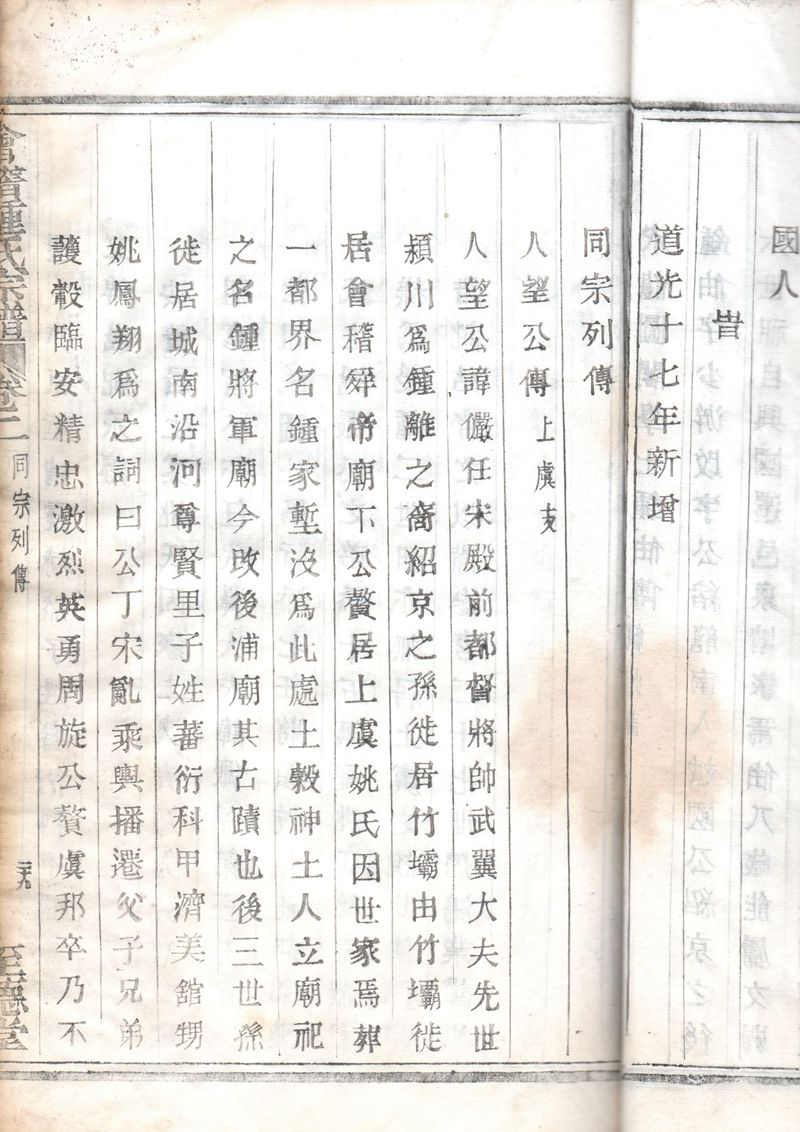 國人
昔
道光十七年新增
同宗列傳
人望公傳 上虞支
人望公諱儼任宋殿前都督將帥武翼大夫先世
潁川爲鍾離之裔紹京之孫徙居竹壩由竹壩徙
居會稽舜帝廟下公贅居上虞姚氏因世家焉葬
一都界名鍾家塹沒爲此處土穀神土人立廟祀
之名鍾將軍廟今改後浦廟其古蹟也後三世孫
徙居城南沿河尊賢里子姓蕃衍科甲濟美舘甥
姚鳳翔爲之詞曰公丁宋亂乘輿播遷父子兄弟
護轂臨安精忠激烈英勇周旋公贅虞邦卒乃不
會稽鍾氏宗譜 卷二 同宗列傳 二十九 至德堂